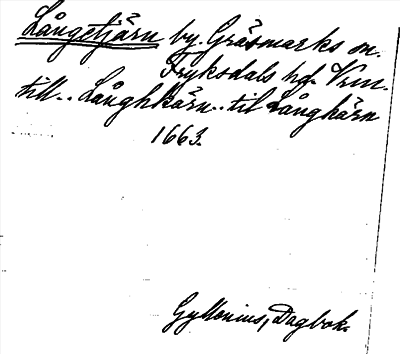 Långetjärn by. Gräsmarks sn.
Fryksdals hd. Vrm.
till.. Långhkärn.. til Långhärn
1663.
Gyllenius, Dagbok.